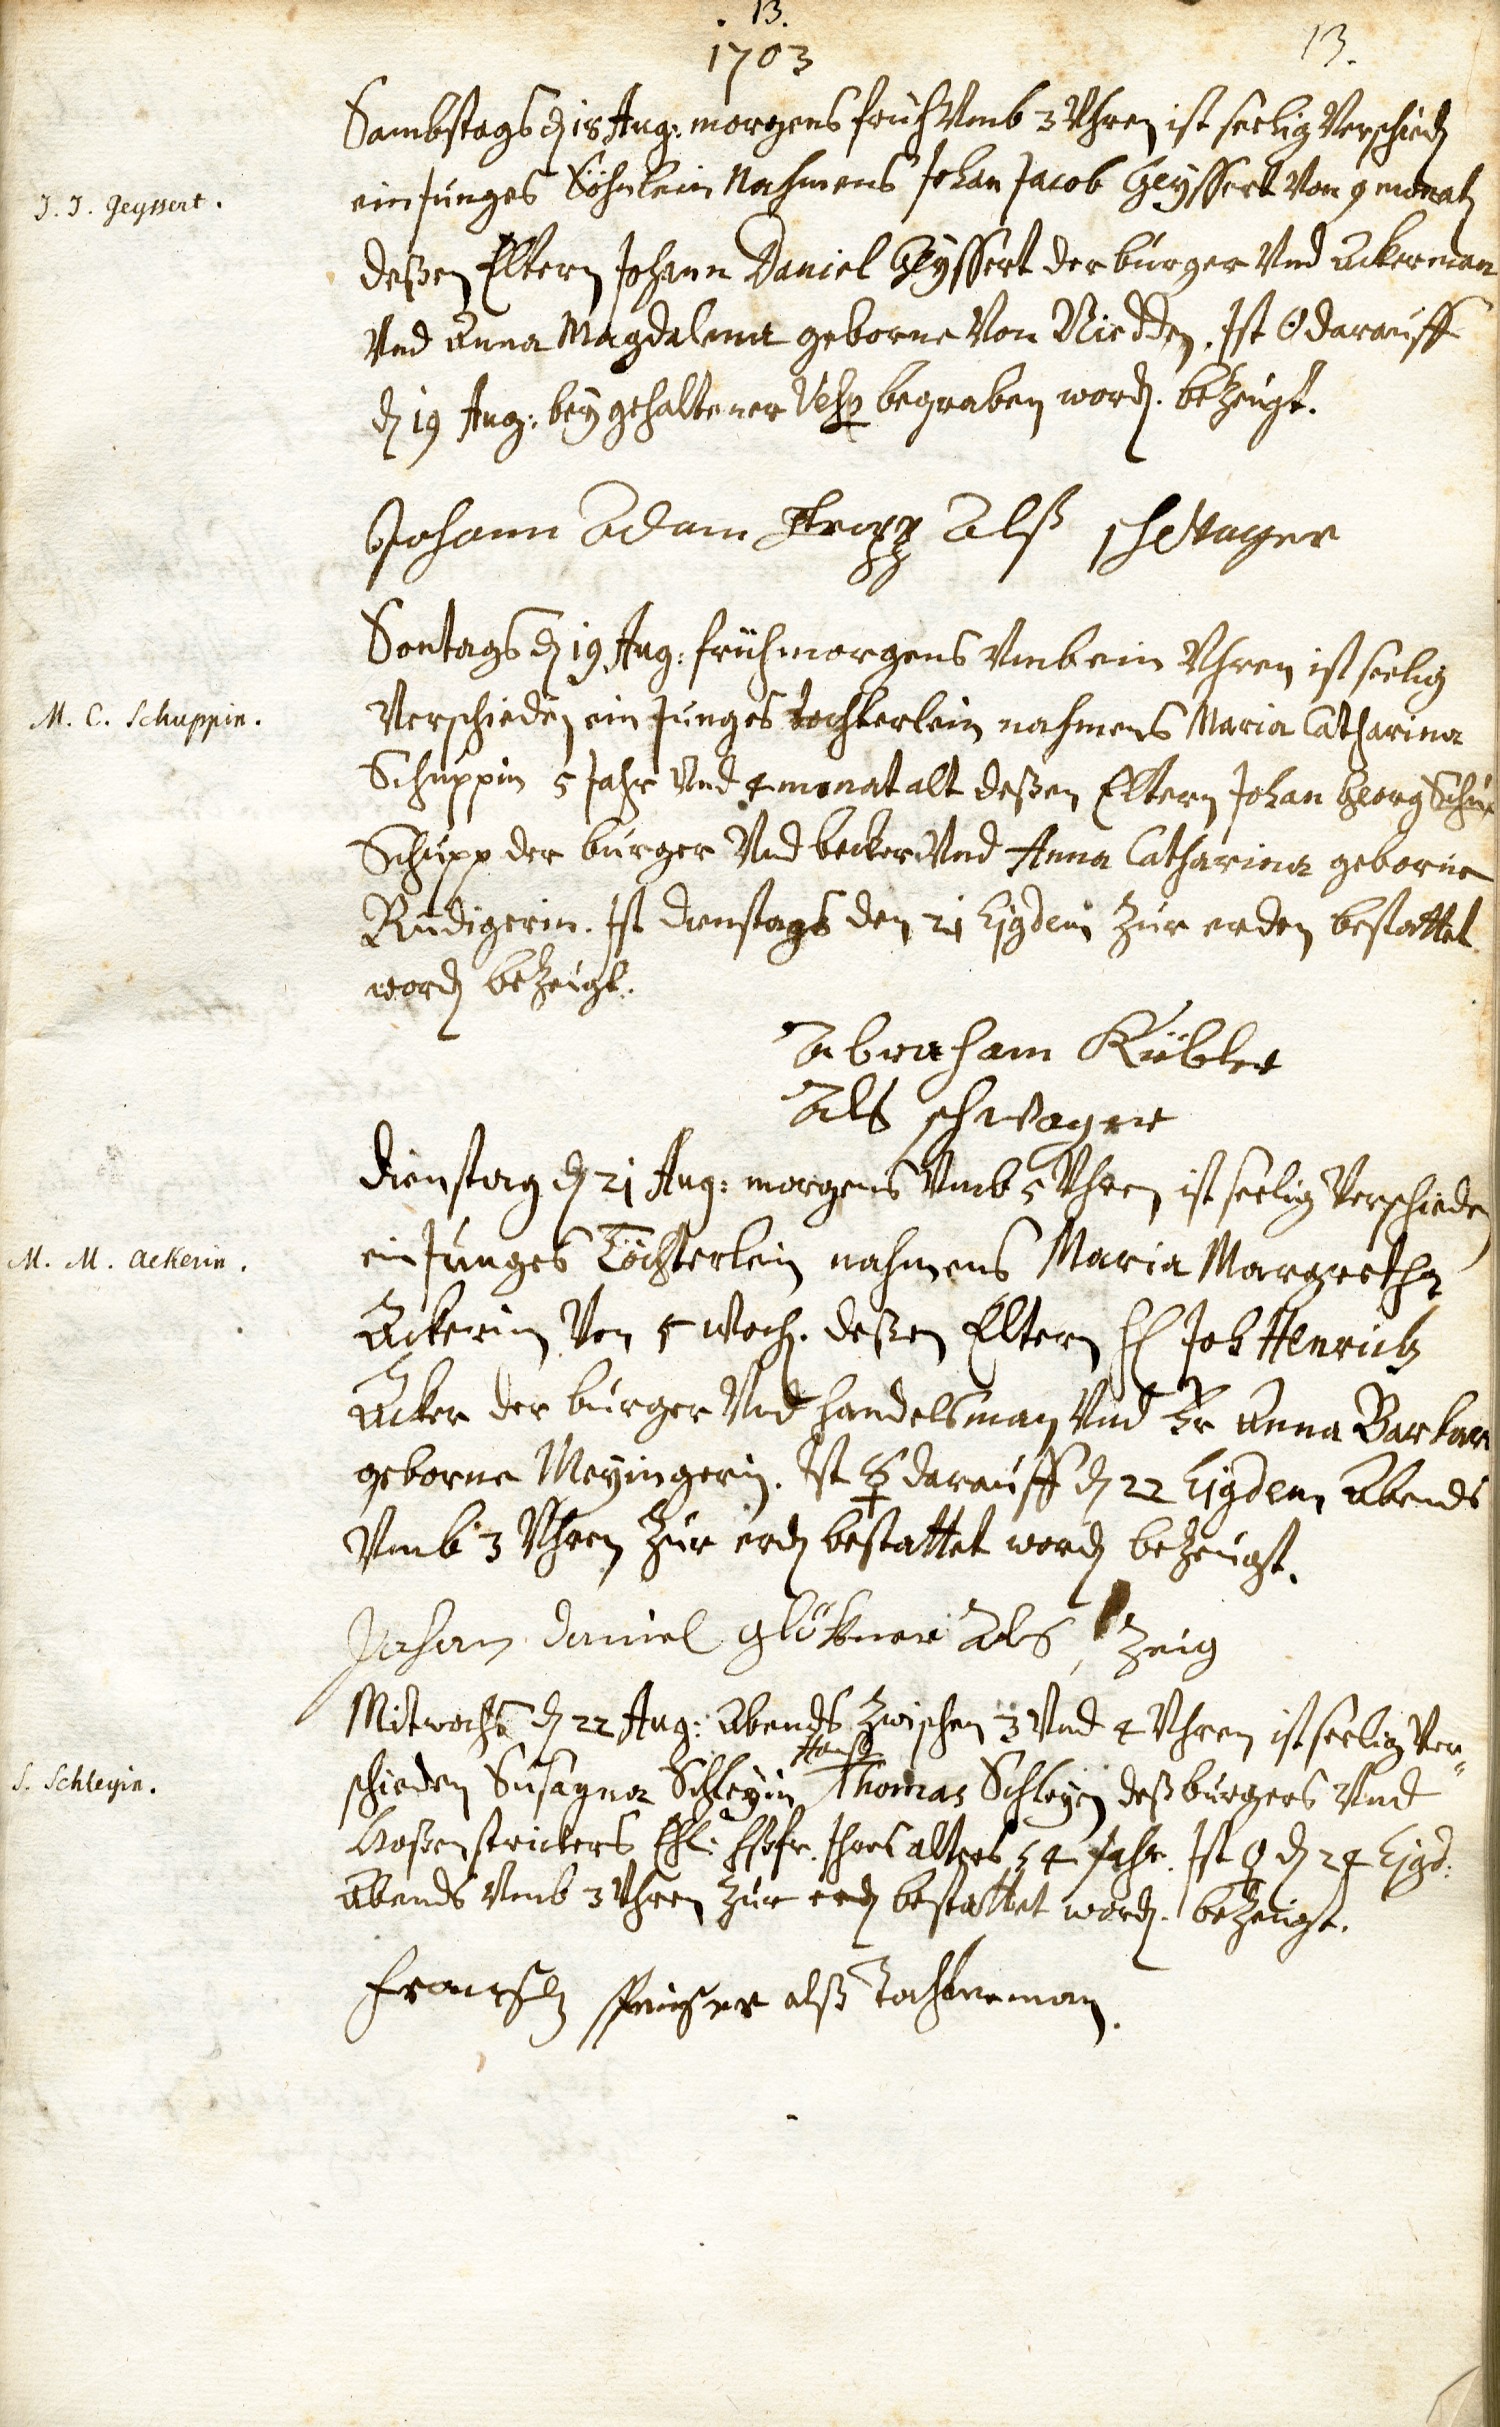 . 13.
1703
13.
Sambstags dẽ 18 Aug: morgens früh Vmb 3 Vhren ist seelig Verschiedẽ
J. J. Geyssert.
ein junges Söhnlein Nahmens Johan Jacob Geyssert Von 9 monatẽ
deßen Eltern Johann Daniel Geyssert der burger Vnd Ackerman
Vnd Anna Magdalena geborne Von Niedden. Ist ☉ darauff
dẽ 19 Aug: bey gehaltener Vesp begraben wordẽ. bezeugt.
Johann Adam Alß schwager
Sontags dẽ 19 Aug: früh morgens Vmb ein Vhren ist seelig
M. C. Schuppin.
Verschieden ein junges tochterlein nahmens Maria Catharina
Schuppin 5 Jahr Vnd 4 monat alt deßen Eltern Johan Georg Schup
Schupp der burger Vnd becker Vnd Anna Catharina geborne
Rudigerin. Ist dienstags den 21 Ejgdem zur erden bestattet
wordẽ bezeugt.
Abraham Kübler
Als schwager
Dienstag dẽ 21 Aug: morgens Vmb 5 Vhren ist seelig Verschieden
M. M. Ackerin.
ein junges Töchterlein nahmens Maria Margretha
Ackerin Von 5 wochẽ. deßen Eltern H Joh Henrich
Acker der burger Vnd handelsman Vnd Fr Anna Barbara
geborne Meyingerin. Ist ☿ darauff dẽ 22 Ejgdem Abends
Vmb 3 Vhren zur erdẽ bestattet wordẽ bezeugt.
Johan Daniel glöckner Als Zeig
Mitwochs dẽ 22 Aug: Abends zwischen 3 Vnd 4 Vhren ist seelig Ver-
Hanß
S. Schleyin.
schieden Susanna Schleyin Thomas Schleyen deß burgers Vnd
Hoßenstrickers Ehl: Haßfr. Ihres alters 54 Jahr. Ist ♀ dẽ 24 Ejgd:
Abends Vmb 3 Vhren zur erdẽ bestattet wordẽ. bezeugt.
Frantz alß Tochterman.